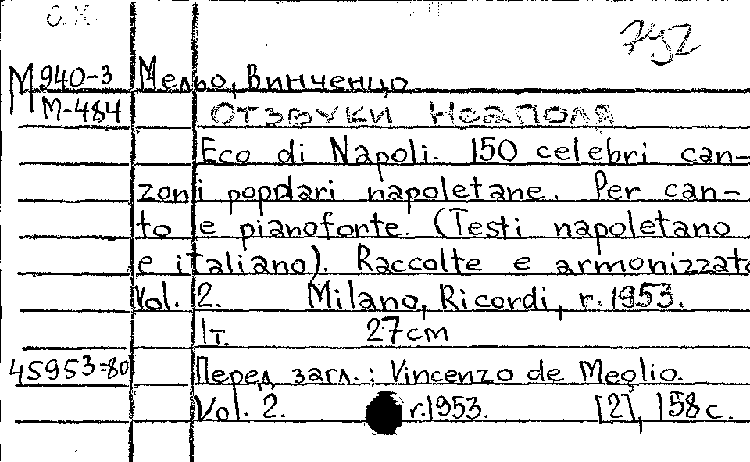 О.Х.
792
М 940-3 Мельо, Винченцо
М-484 Отзвуки Неаполя
Eco di Napoli. 150 celebri can-
zoni popolari napoletane. Per can-
to e pianoforte. (Testi napoletano
e italiano). Raccolte e armonizzate
Vol. 2. Milano, Ricordi, r. 1953.
1т. 27cm
45953-80 Перед загл.: Vincenzo de Meglio.
Vol. 2. r.1953. [2], 158 с.